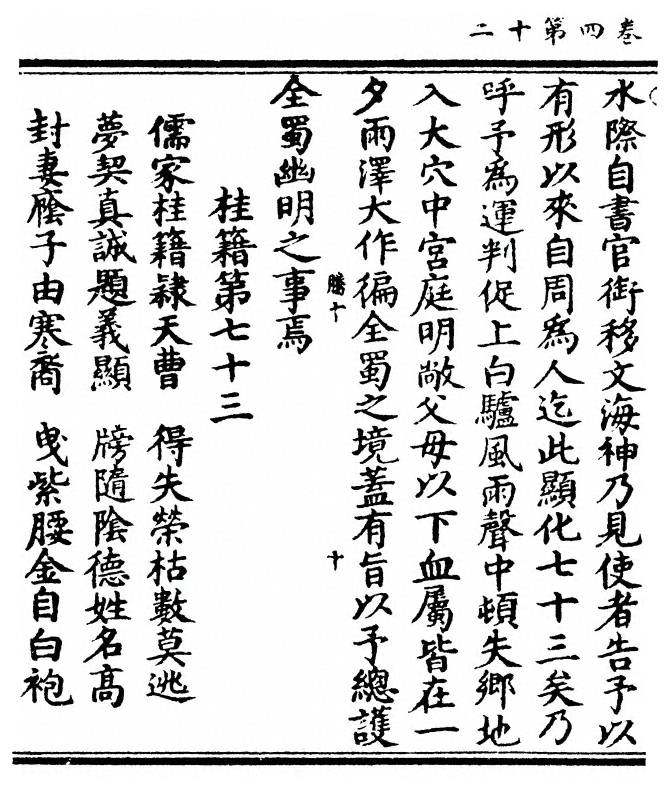 卷四第十二
水際自書官銜移文海神乃見使者告予以
有形以來自周為人迄此顯化七十三矣乃
呼予為運判促上白驢風雨聲中頓失鄉地
入大穴中宮庭明敞父母以下血屬皆在一
夕雨澤大作徧全蜀之境蓋有旨以予總護
勝十
十
全蜀幽明之事焉
桂籍第七十三
儒家桂籍隷天曹 得失榮枯數莫逃
夢契真誠題義顯 牓隨陰德姓名高
封妻廕子由寒裔 曳紫腰金自白袍